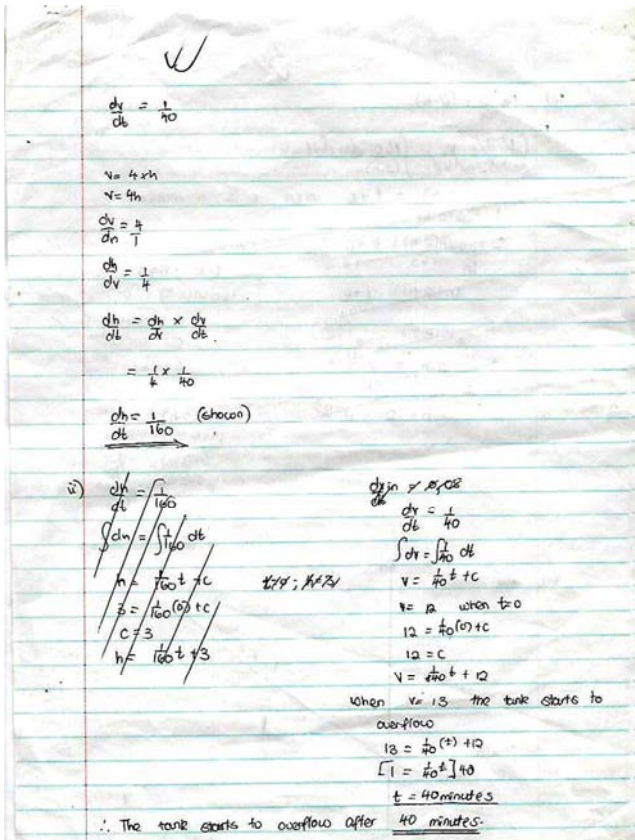 dv/dt = 1/40
v = 4 × h
v = 4h
dv/dh = 4/1
dh/dv = 1/4
dh/dt = dh/dv × dv/dt
= 1/4 × 1/40
dh/dt = 1/160 (shown)
ii) dh/dt = 1/160
∫dh = ∫1/160 dt
h = 1/160 t + c
3 = 1/160 (0) + c
c = 3
h = 1/160 t + 3
dv/dt = 1/40
∫dv = ∫1/40 dt
v = 1/40 t + c
v = 12 when t=0
12 = 1/40 (0) + c
12 = c
v = 1/40 t + 12
when v = 13 the tank starts to
overflow
13 = 1/40 (t) + 12
[1 = 1/40 t] 40
t = 40 minutes
∴ The tank starts to overflow after 40 minutes.